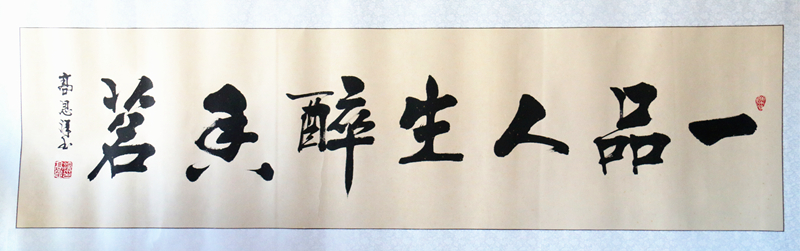 一品人生醉香茗
高恩泽书